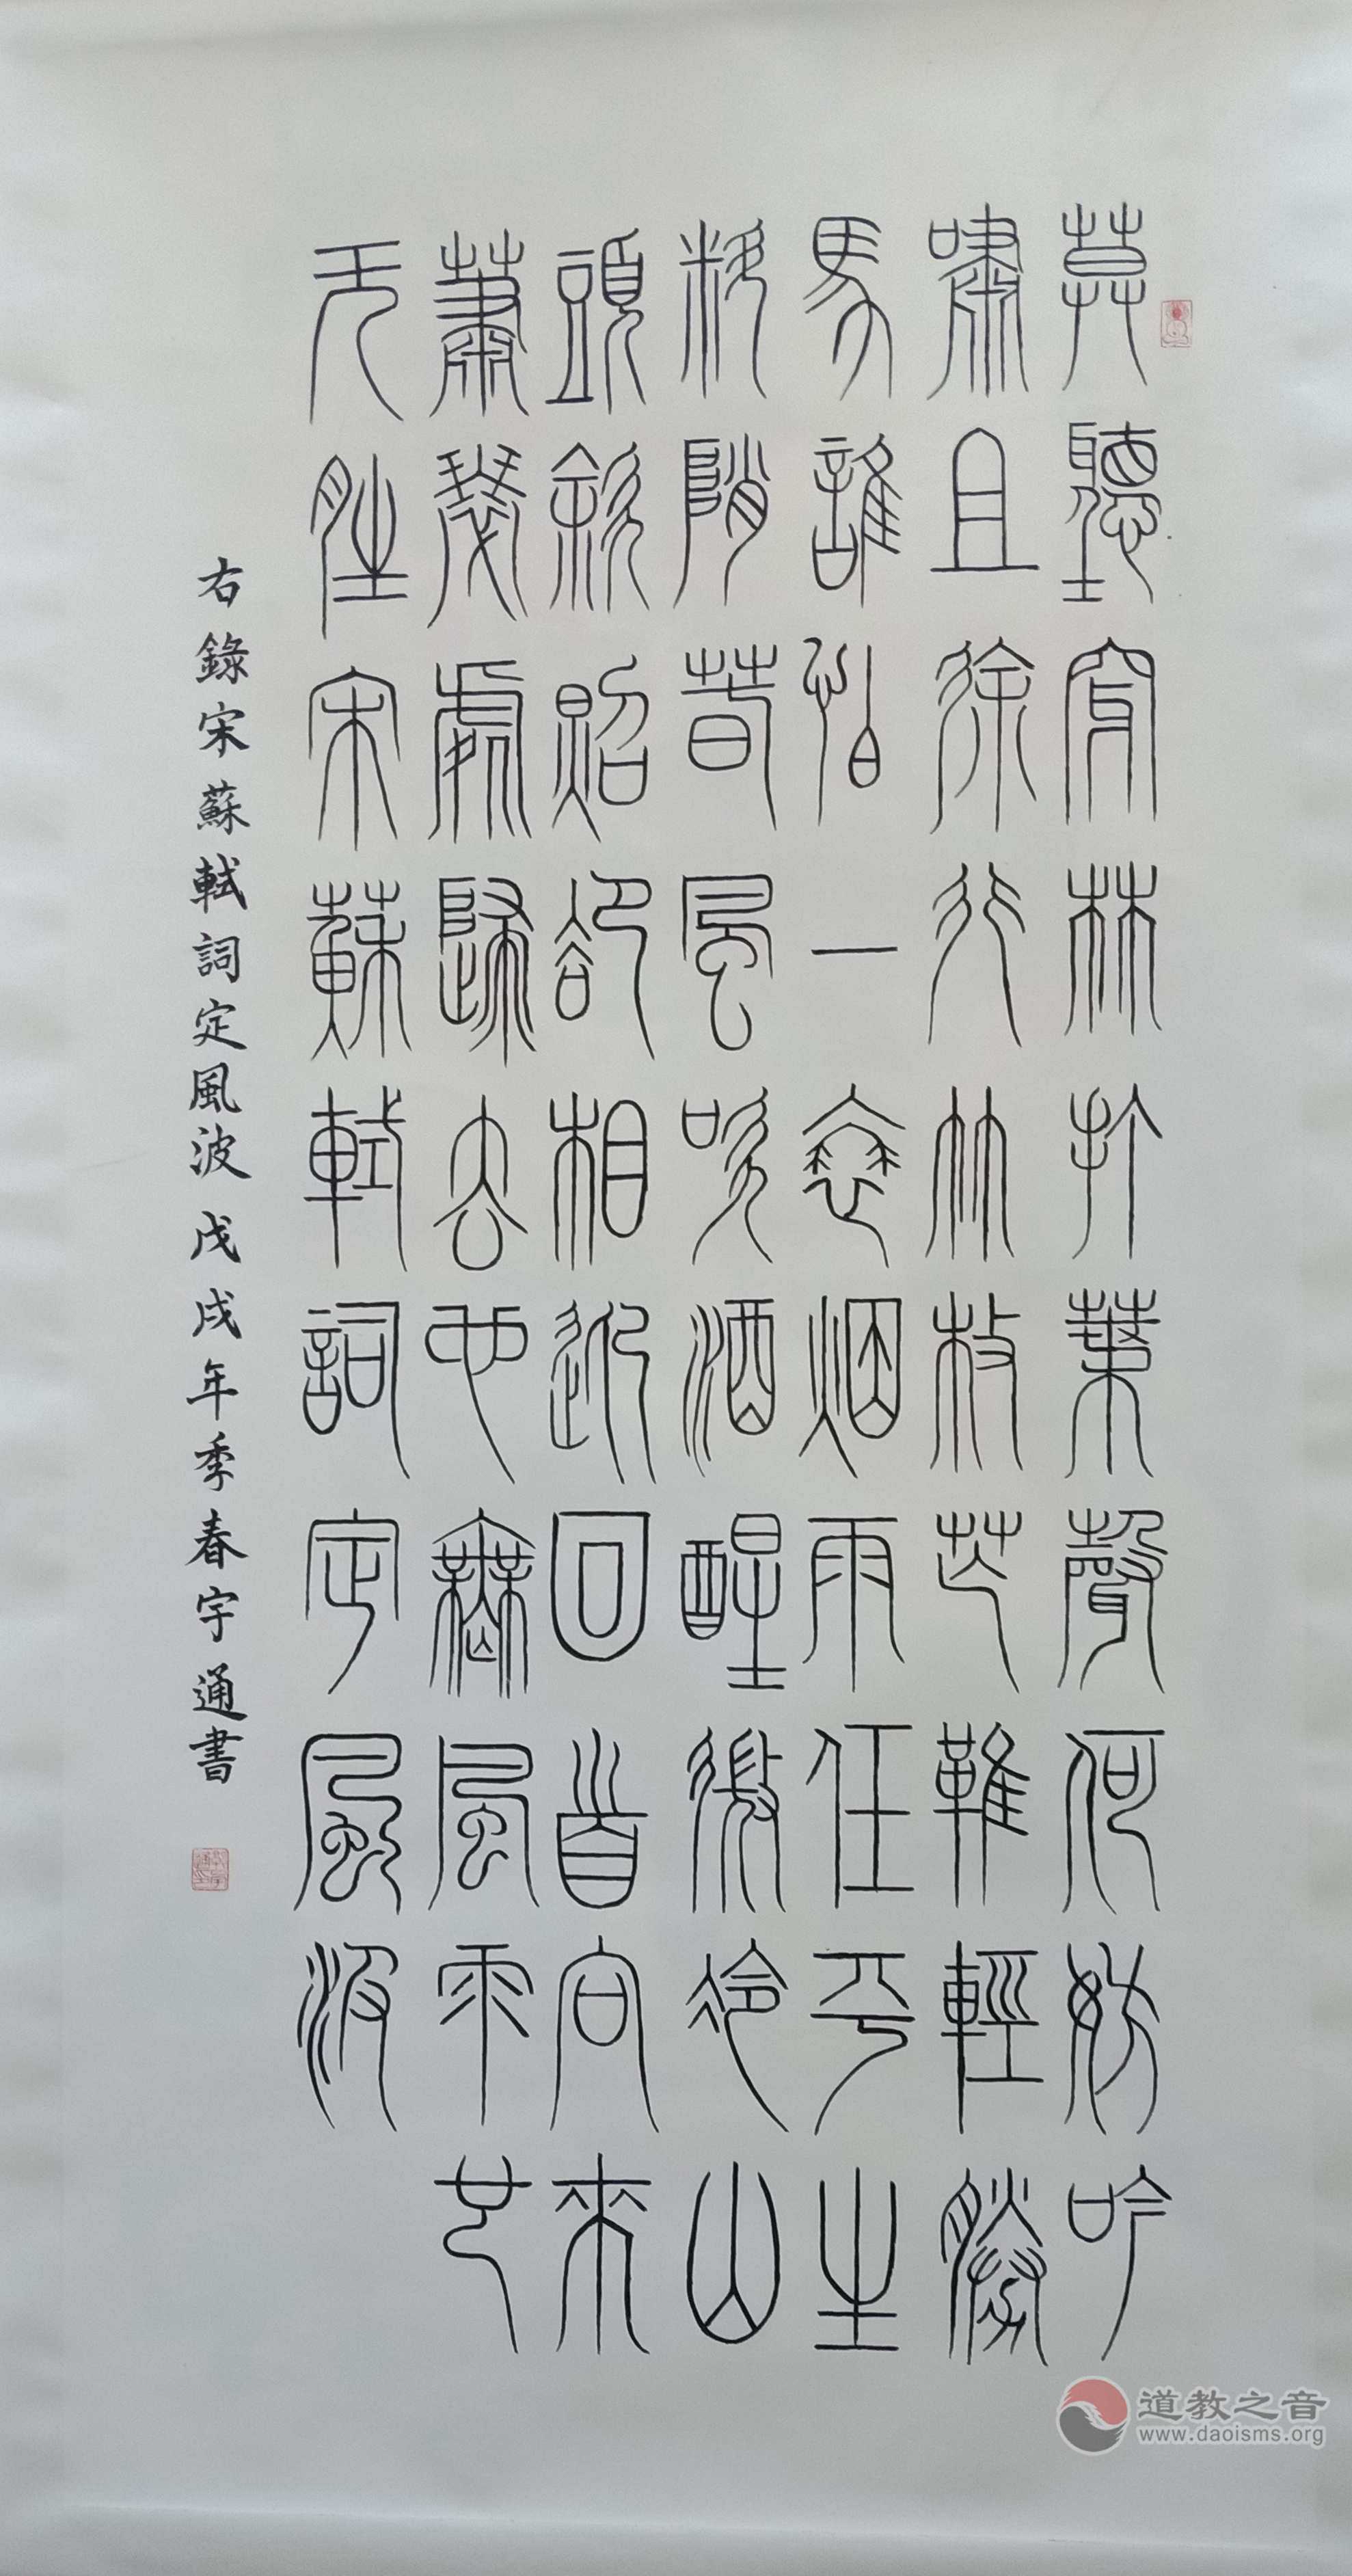 莫聽穿林打葉聲何妨吟
嘯且徐行竹杖芒鞋輕勝
馬誰怕一蓑烟雨任平生
料峭春風吹酒醒微冷山
頭斜照卻相迎回首向來
蕭瑟處歸去也無風雨也
无晴宋蘇軾詞定風波
右錄宋蘇軾詞定風波 戊戌年季春宇通書
道教之音
www.daoisms.org